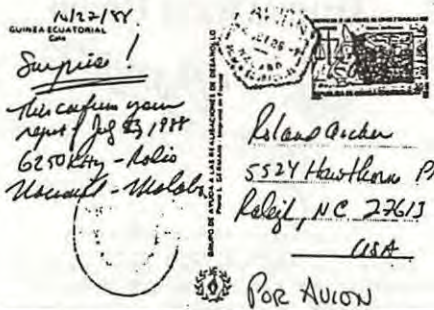 10/27/88
GUINEA ECUATORIAL
Surprise!
This confirm your
report of July 23, 1988
6250 KHz - Radio
Nacional - Malabo
GRUPO DE AYUDA A LAS REALISACIONES DE DESAROLLO
Roland Archer
5524 Hawthorne Pl
Raleigh, NC 27613
USA
POR AVION